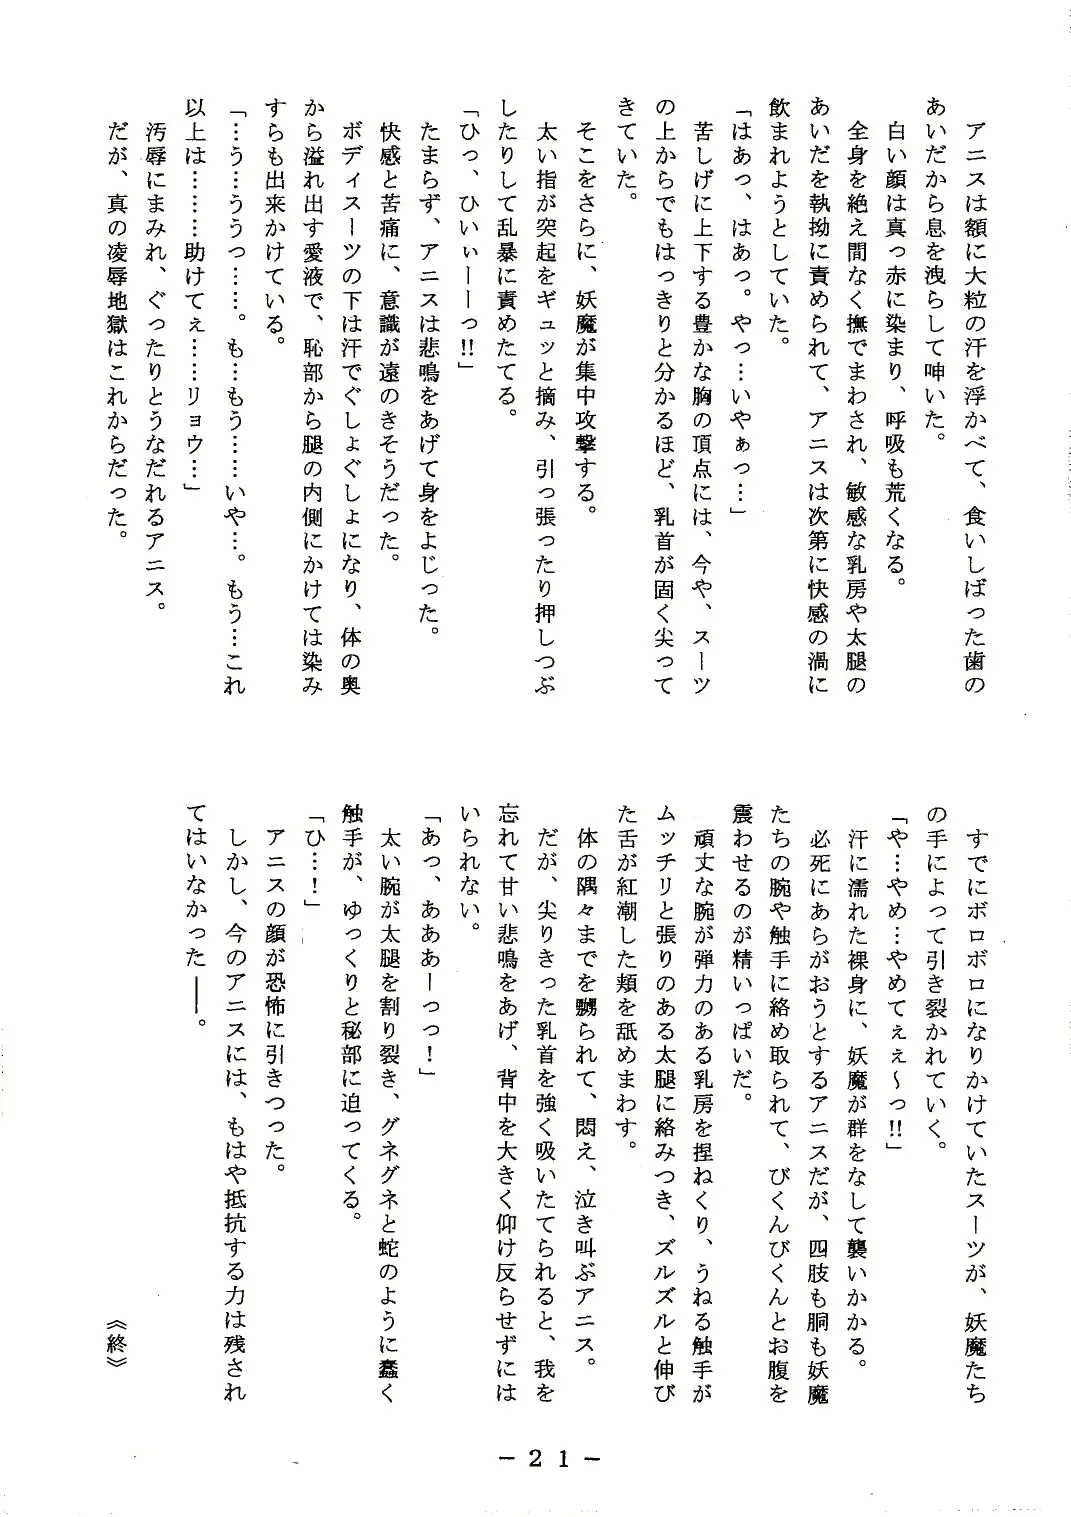 アニスは額に大粒の汗を浮かべて、食いしばった歯の
あいだから息を洩らして呻いた。
白い顔は真っ赤に染まり、呼吸も荒くなる。
全身を絶え間なく撫でまわされ、敏感な乳房や太腿の
あいだを執拗に責められて、アニスは次第に快感の渦に
飲まれようとしていた。
「はあっ、はあっ。やっ…いやぁっ…」
苦しげに上下する豊かな胸の頂点には、今や、スーツ
の上からでもはっきりと分かるほど、乳首が固く尖って
きていた。
そこをさらに、妖魔が集中攻撃する。
太い指が突起をギュッと摘み、引っ張ったり押しつぶ
したりして乱暴に責めたてる。
「ひっ、ひいぃーーっ!!」
たまらず、アニスは悲鳴をあげて身をよじった。
快感と苦痛に、意識が遠のきそうだった。
ボディスーツの下は汗でぐしょぐしょになり、体の奥
から溢れ出す愛液で、恥部から腿の内側にかけては染み
すらも出来かけている。
「…う…ううっ……。も…もう……いや…。もう…これ
以上は………助けてぇ……リョウ…」
汚辱にまみれ、ぐったりとうなだれるアニス。
だが、真の凌辱地獄はこれからだった。
すでにボロボロになりかけていたスーツが、妖魔たち
の手によって引き裂かれていく。
「や…やめ…やめてぇぇ〜っ!!」
汗に濡れた裸身に、妖魔が群をなして襲いかかる。
必死にあらがおうとするアニスだが、四肢も胴も妖魔
たちの腕や触手に絡め取られて、びくんびくんとお腹を
震わせるのが精いっぱいだ。
頑丈な腕が弾力のある乳房を捏ねくり、うねる触手が
ムッチリと張りのある太腿に絡みつき、ズルズルと伸び
た舌が紅潮した頬を舐めまわす。
体の隅々までを嬲られて、悶え、泣き叫ぶアニス。
だが、尖りきった乳首を強く吸いたてられると、我を
忘れて甘い悲鳴をあげ、背中を大きく仰け反らせずには
いられない。
「あっ、あああーっっ！」
太い腕が太腿を割り裂き、グネグネと蛇のように蠢く
触手が、ゆっくりと秘部に迫ってくる。
「ひ…！」
アニスの顔が恐怖に引きつった。
しかし、今のアニスには、もはや抵抗する力は残され
てはいなかった――。
《終》
－２１－